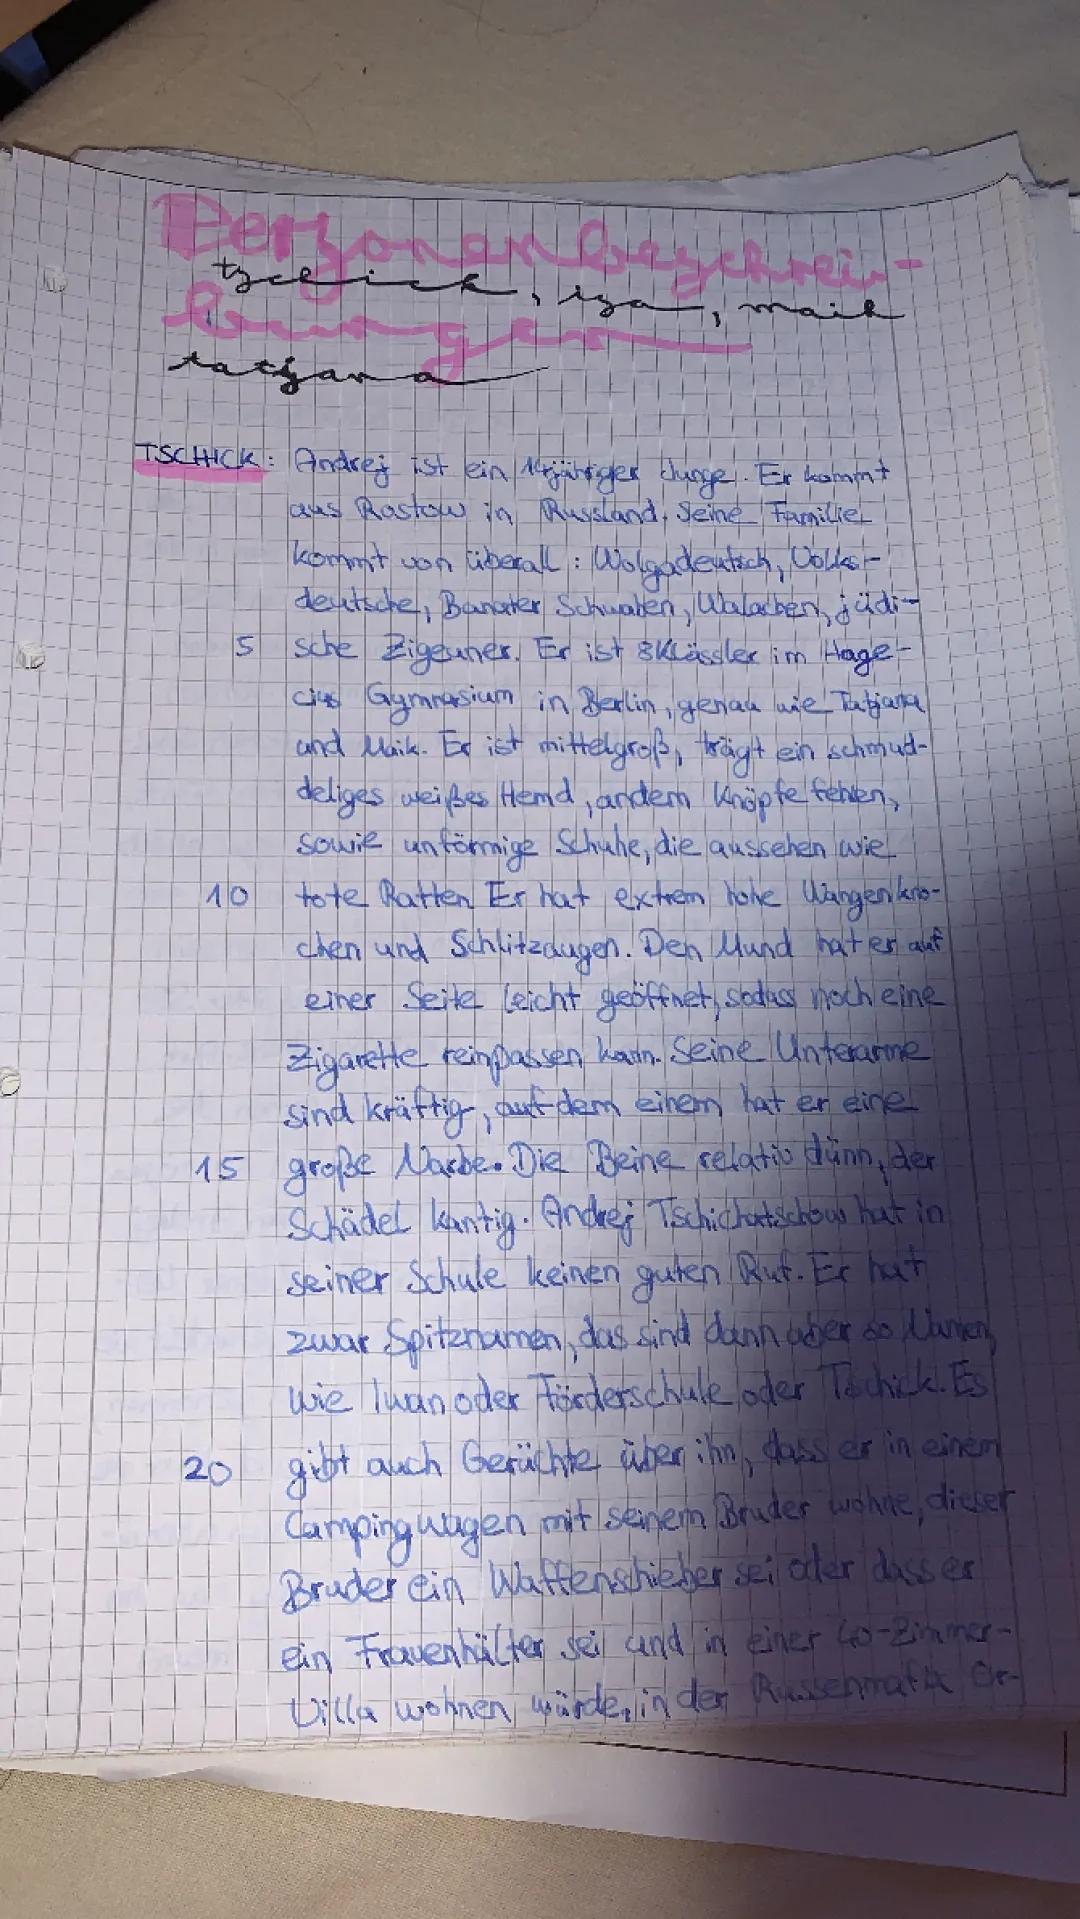 Personenbeschrei-
tschick, isa, maik
bungen
tatjana
TSCHICK: Andrej ist ein 14jähriger Junge. Er kommt
aus Rostow in Russland. Seine Familie
kommt von überall: Wolgadeutsch, Volks-
deutsche, Banater Schwaben, Walachen, jüdi-
5 sche Zigeuner. Er ist 8Klässler im Hage-
cius Gymnasium in Berlin, genau wie Tatjana
und Maik. Er ist mittelgroß, trägt ein schmud-
deliges weißes Hemd, andem Knöpfe fehlen,
sowie unförmige Schuhe, die aussehen wie
10 tote Ratten. Er hat extrem hohe Wangenkno-
chen und Schlitzaugen. Den Mund hat er auf
einer Seite leicht geöffnet, sodass noch eine
Zigarette reinpassen kann. Seine Unterarme
sind kräftig, auf dem einem hat er eine
15 große Narbe. Die Beine relativ dünn, der
Schädel kantig. Andrej Tschichatschow hat in
seiner Schule keinen guten Ruf. Er hat
zwar Spitznamen, das sind dann aber so Namen
wie Iwan oder Förderschule oder Tschick. Es
20 gibt auch Gerüchte über ihn, dass er in einem
Campingwagen mit seinem Bruder wohne, dieser
Bruder ein Waffenschieber sei oder dass er
ein Frauenhälter sei und in einer 40-Zimmer-
Villa wohnen würde, in der Russenmafia Or-